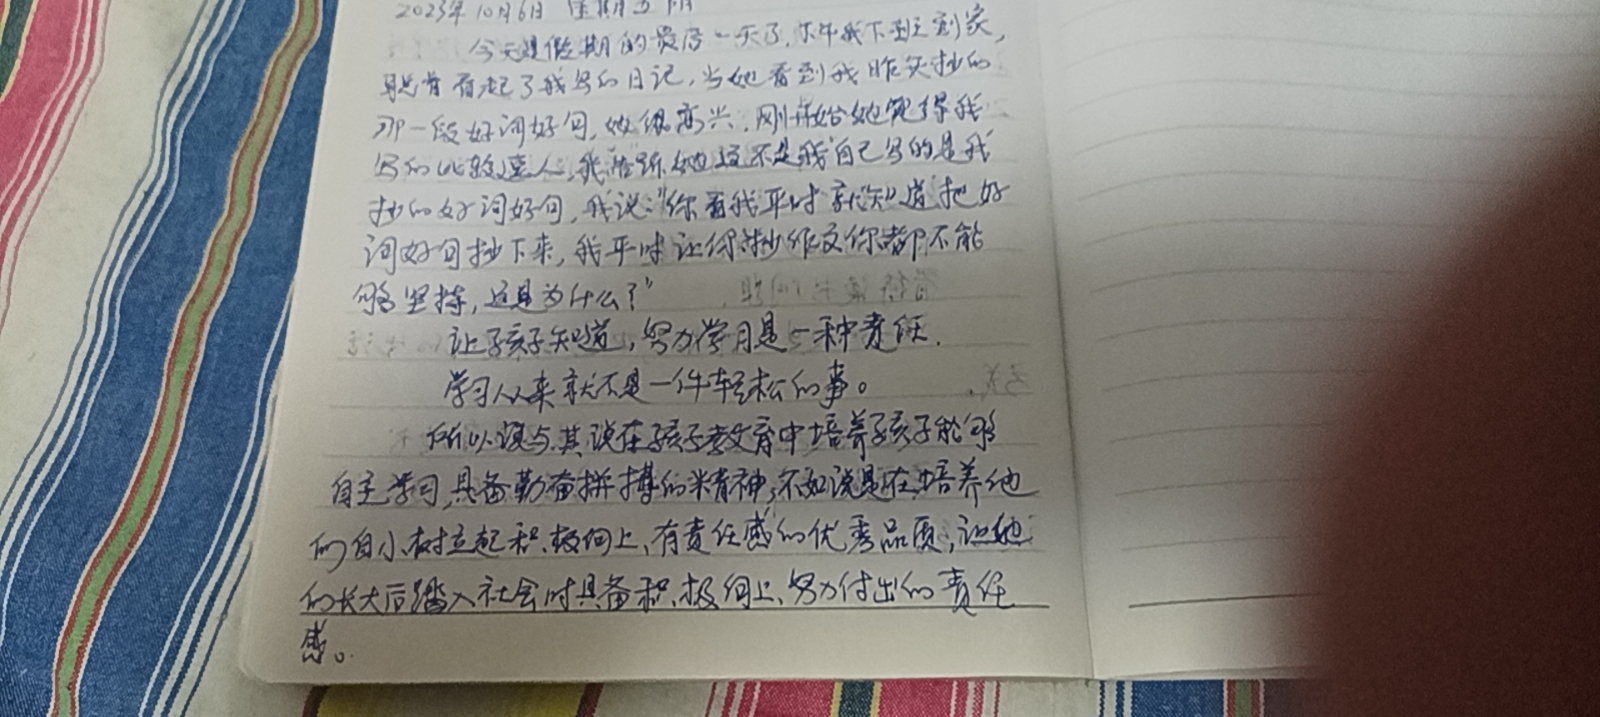 2023年10月6日 星期五 阴
今天是假期的最后一天了,下午我下班到家,
看起了我写的日记,当她看到我昨天抄的
那一段好词好句,她很高兴,刚开始她觉得我
写的比较速人,我告诉她这不是我自己写的是我
抄的好词好句,我说:“你看我平时就知道把好
词好句抄下来,我平时让你抄作文你都不能
够坚持,这是为什么?”
让孩子知道,努力学习是一种责任.
学习从来就不是一件轻松的事。
所以误与其说在孩子教育中培养孩子能够
自主学习,具备勤奋拼搏的精神,不如说是在培养他
们自小树立起积极向上、有责任感的优秀品质,让他
们长大后踏入社会时具备积极向上、努力付出的责任
感。